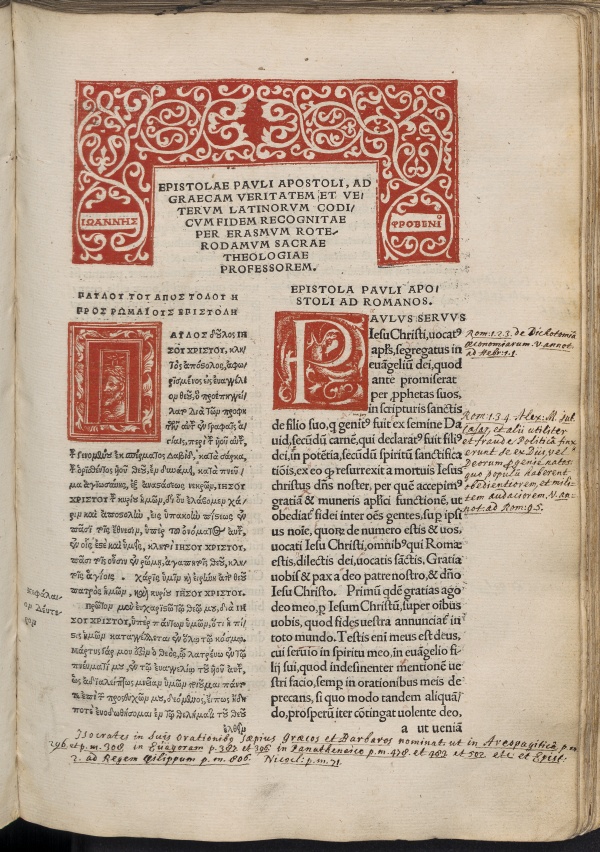 EPISTOLAE PAVLI APOSTOLI, AD
GRAECAM VERITATEM, ET VE/
TERVM LATINORVM CODI/
CVM FIDEM RECOGNITAE
PER ERASMVM ROTE/
RODAMVM SACRAE
THEOLOGIAE
PROFESSOREM.
ΙΩΑΝΝΗΣ
ΦΡΟΒΕΝΙ
ΠΑΥΛΟΥ ΤΟΥ ΑΠΟΣΤΟΛΟΥ Η
ΠΡΟΣ ΡΩΜΑΙΟΥΣ ΕΠΙΣΤΟΛΗ
ΠΑΥΛΟΣ δοῦλος ΙΗ
ΣΟΥ ΧΡΙΣΤΟΥ, κλη/
τὸς ἀπόστολος, ἀφω
ρισμένος εἰς ἐυαγγέλι
ομ θεοῦ, ὃ προεπηγγεί
λατο διὰ τῶμ προφη
τῶμ ἁυτ, ἐμ γραφαῖς ἁγί
αις, περὶ τ ὑοῦ ἁυτ,
τ γενομένου ἐκ σπέρματος Δαβὶδ, κατὰ σάρκα,
τ ὁρισθέντος ὑοῦ θεοῦ, ἐμ δυνάμει, κατὰ πνεῦ/
μα ἁγιωσύνης, ἐξ ἀναστάσεως νεκρῶμ, ΙΗΣΟΥ
ΧΡΙΣΤΟΥ τ κυρίου ἡμῶμ, δι οὗ ἐλάβομεμ χά/
ριμ καὶ ἀποστολὴμ, εἰς ὑπακοὴμ πίστεως ἐμ
πᾶσι τοῖς ἔθνεσιμ, ὑπὲρ τ ὀνόματος ἁυτ,
ἐμ οἷς ἐστὲ καὶ ὑμεῖς, κλητοὶ ΙΗΣΟΥ ΧΡΙΣΤΟΥ.
πᾶσι τοῖς οὖσιμ ἐμ ῥώμῃ, ἀγαπητοῖς θεοῦ, κλη
τοῖς ἁγίοις. χάρις ὑμῖμ καὶ εἰρήνη ἀπὸ θεοῦ
πατρὸς ἡμῶμ, καὶ κυρίου ΙΗΣΟΥ ΧΡΙΣΤΟΥ.
πρῶτομ μὲμ ἐυχαριστῶ τῷ θεῷ μου, διὰ ΙΗ
ΣΟΥ ΧΡΙΣΤΟΥ, ὑπὲρ πάντωμ ὑμῶμ, ὅτι ἡ πί
στις ὑμῶμ καταγγέλλεται ἐμ ὅλῳ τῷ κόσμῳ.
Μάρτυς γάρ μου ἐστὶμ ὁ θεὸς, ᾧ λατρέυω ἐμ τῷ
πνέυματί μου, ἐμ τῷ ἐυαγγελίῳ τ ὑοῦ ἁυτ,
ὡς ἀδιαλείπτως, μνείαμ ὑμῶμ ποιοῦμαι πάντο
τε ἐπὶ τ προσευχῶμ μου, δεόμενος, εἴπως ἤδη
ποτὲ ἐυοδωθήσομαι ἐμ τῷ θελήματι τ θεοῦ
ἐλθεῖμ
EPISTOLA PAVLI APO/
STOLI AD ROMANOS.
PAVLVS SERVVS
Iesu Christi, uocatꝰ
apľs, segregatus in
euãgeliũ dei, quod
ante promiserat
per ꝓphetas suos,
in scripturis sanctis
de filio suo, q̃ genitꝰ fuit ex semine Da
uid, secũdũ carnẽ, qui declaratꝰ fuit filiꝰ
dei, in potẽtia, secũdũ spiritũ sanctifica
tiõis, ex eo ꝙ resurrexit a mortuis Iesus
christus dñs noster, per quẽ accepimꝰ
gratiã & muneris apľici functionẽ, ut
obediat̃ fidei inter oẽs gentes, sup ipsi
us noĩe, quorꝫ de numero estis & uos,
uocati Iesu Christi, omnibꝰ qui Romæ
estis, dilectis dei, uocatis sãctis. Gratia
uobis & pax a deo patre nostro, & dño
Iesu Christo. Primũ qdẽ gratias ago
deo meo, ꝑ Iesum Christũ, super oibus
uobis, quod fides uestra annunciat̃ in
toto mundo. Testis eni meus est deus,
cui seruio in spiritu meo, in euãgelio fi
lii sui, quod indesinenter mentionẽ ue
stri facio, semꝑ in orationibus meis de
precans, si quo modo tandem aliquã/
do, prosperũ iter cõtingat uolente deo,
a ut ueniã
Rom: 1. 2. 3. de Dichotomia
œconomiarum. V. annot.
ad Hebr: 1. 1.
Rom: 1. 3. 4. Alex: M.
et alii utiliter
et fraude Politicâ
erunt se ex Diis, vel
Deorum genie natos
quo populũ haberent
obedientiorem, et mili-
tem audaciorem. V. an-
not: ad Rom: 9. 5.
Isocrates in suis orationibꝰ sæpius Græcos et Barbaros nominat: ut in Areopagiticâ p. m.
296. et p. m. 308. in Euagoram p. 387. et 396. in Panathenaico p. m. 478. et 483. et 502. etc. et Epist:
2. ad Regem Philippum p. m. 806. Nicocl: p. m. 71.